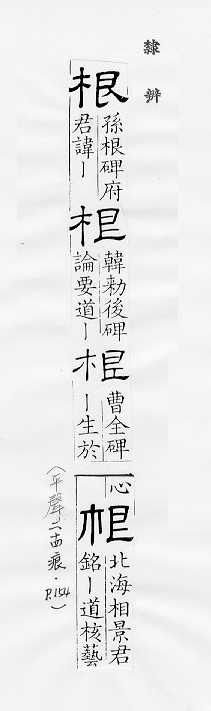 隸辨
根 孫根碑府
君諱ー
根 韓勑後碑
論要道ー
根 曹全碑
ー生於
心
根 北海相景君
銘ー道核藝
(平聲二十四痕．P.154)